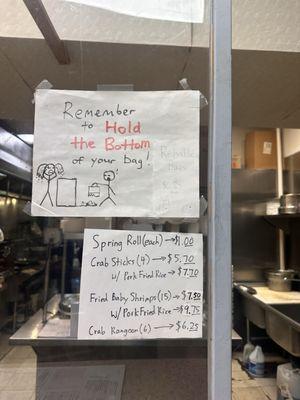 Remember
to Hold
the Bottom
of your bag!
Spring Roll (each) → $1.00
Crab Sticks (4) → $5.70
w/ Pork Fried Rice → $7.70
Fried Baby Shrimps (15) → $7.50
w/ Pork Fried Rice → $9.75
Crab Rangoon (6) → $6.25